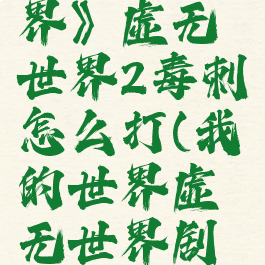 界》虚无
世界2毒刺
怎么打(我
的世界虚
无世界制